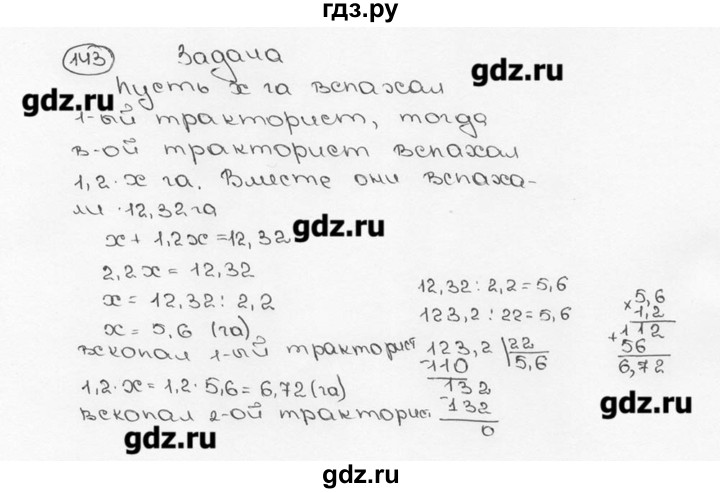 гдз.ру
143 Задача
Пусть x га вспахал
gdz.ru
gdz.ru
1-ый тракторист, тогда
в-ой тракторист вспахал
1,2·x га. Вместе они вспаха-
ли 12,32 га
gdz.ru
x + 1,2x = 12,32
2,2x = 12,32
x = 12,32 : 2,2
x = 5,6 (га)
вскопал 1-ый тракторист
1,2·x = 1,2·5,6 = 6,72 (га)
вскопал 2-ой тракторист
12,32 : 2,2 = 5,6
123,2 : 22 = 5,6
123,2 | 22
-110 5,6
132
-132
0
5,6
× 1,2
112
+ 56
6,72
gdz.ru
gdz.ru
gdz.ru